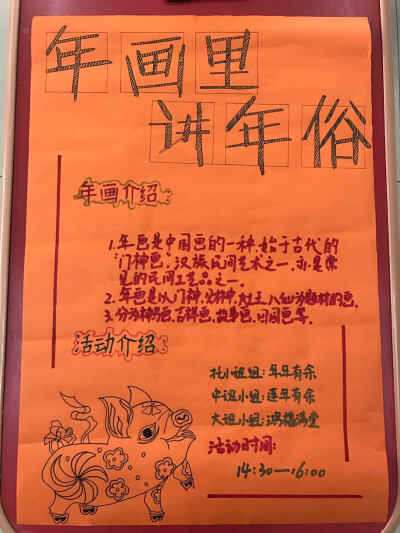 年画里
讲年俗
年画介绍
1.年画是中国画的一种,始于古代的
"门神画"。汉族民间艺术之一,亦是常
见的民间工艺品之一。
2.年画是以门神,财神,灶王,八仙为题材的画。
3.分为神号画,吉祥画,故事画,田园画等。
活动介绍
托小班组:年年有余
中班小组:连年有余
大班小组:鸿福满堂
活动时间:
14:30—16:00